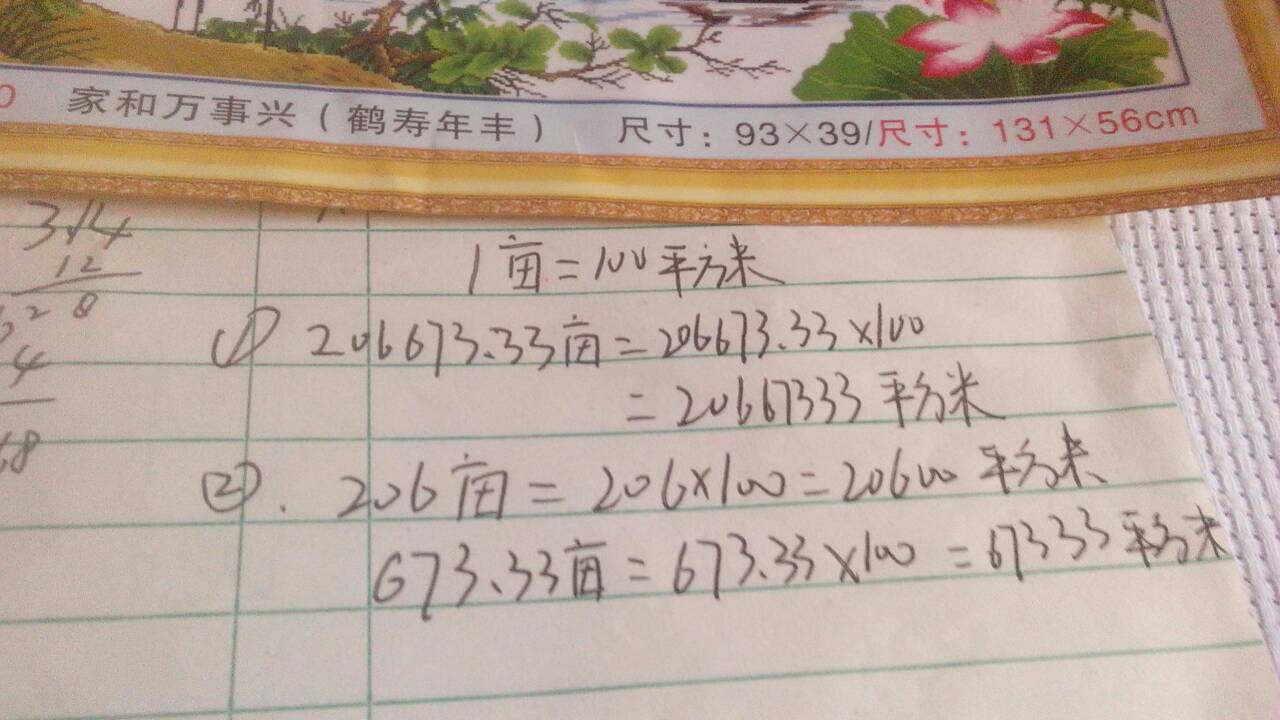 0 家和万事兴(鹤寿年丰) 尺寸:93×39/尺寸:131×56cm
314
12
28
4
68
1亩=100平方米
① 206673.33亩=206673.33×100
=20667333平方米
②. 206亩=206×100=20600平方米
673.33亩=673.33×100=67333平方米